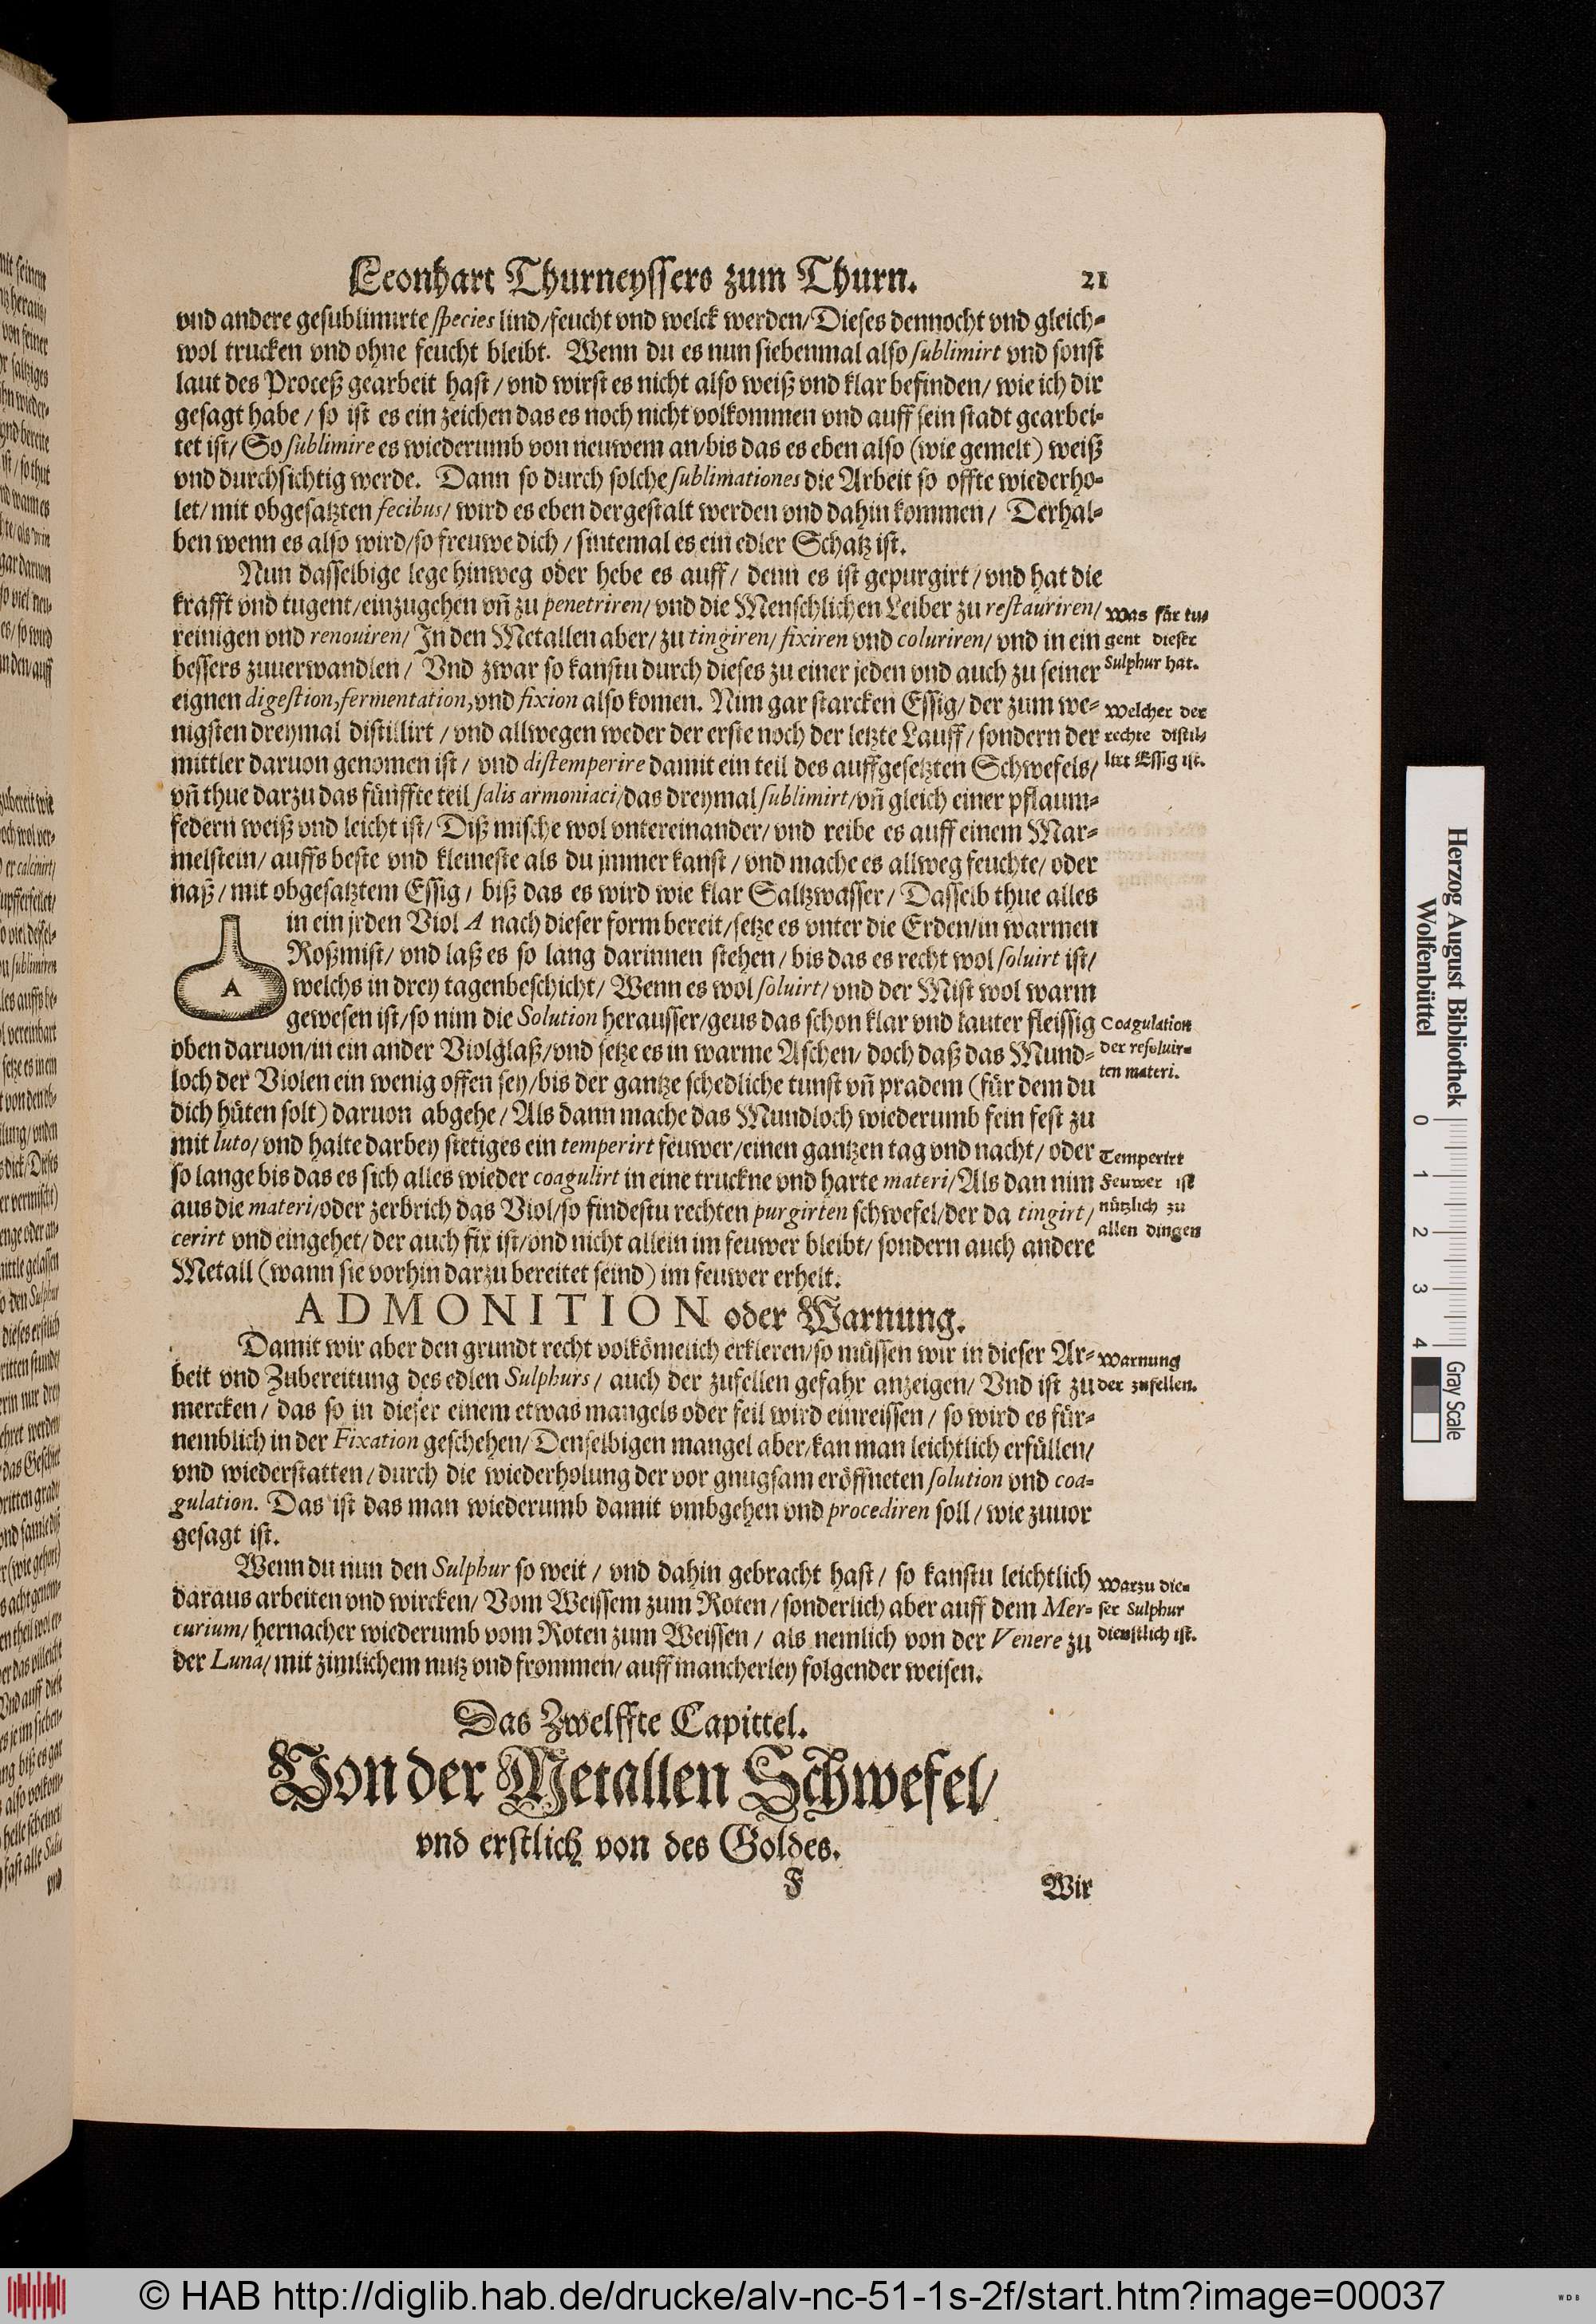 Leonhart Thurneyssers zum Thurn. 21
vnd andere gesublimirte species lind/feucht vnd welck werden/Dieses dennocht vnd gleich-
wol trucken vnd ohne feucht bleibt. Wenn du es nun siebenmal also sublimirt vnd sonst
laut des Proceß gearbeit hast/vnd wirst es nicht also weiß vnd klar befinden/wie ich dir
gesagt habe/so ist es ein zeichen das es noch nicht volkommen vnd auff sein stadt gearbei-
tet ist/So sublimire es wiederumb von neuwem an/bis das es eben also (wie gemelt) weiß
vnd durchsichtig werde. Dann so durch solche sublimationes die Arbeit so offte wiederho-
let/mit obgesaltzten fecibus/wird es eben dergestalt werden vnd dahin kommen/ Derhal-
ben wenn es also wird/so freuwe dich/sintemal es ein edler Schatz ist.
Nun dasselbige lege hinweg oder hebe es auff/denn es ist gepurgirt/vnd hat die
krafft vnd tugent/einzugehen vñ zu penetriren/vnd die Menschlichen Leiber zu restauriren/
reinigen vnd renouiren/In den Metallen aber/zu tingiren/fixiren vnd coluriren/vnd in ein
bessers zuuerwandlen/ Vnd zwar so kanstu durch dieses zu einer jeden vnd auch zu seiner
Was für tu-
gent dieser
Sulphur hat.
eignen digestion,fermentation,vnd fixion also komen. Nim gar starcken Essig/der zum we-
nigsten dreymal distillirt/vnd allwegen weder der erste noch der letzte Lauff/sondern der
mittler daruon genomen ist/ vnd distemperire damit ein teil des auffgesetzten Schwefels/
Welcher der
rechte distil-
lirt Essig ist.
vñ thue darzu das fünffte teil salis armoniaci/das dreymal sublimirt/vñ gleich einer pflaum-
federn weiß vnd leicht ist/Diß mische wol vntereinander/vnd reibe es auff einem Mar-
melstein/auffs beste vnd kleineste als du jmmer kanst/vnd mache es allweg feuchte/oder
naß/mit obgesaltztem Essig/ biß das es wird wie klar Saltzwasser/Dasselb thue alles
in ein jrden Viol A nach dieser form bereit/setze es vnter die Erden/in warmen
Roßmist/vnd laß es so lang darinnen stehen/bis das es recht wol soluirt ist/
A
welchs in drey tagen beschicht/Wenn es wol soluirt/vnd der Mist wol warm
gewesen ist/so nim die Solution herausser/geus das schon klar vnd lauter fleissig
oben daruon/in ein ander Violglaß/vnd setze es in warme Aschen/doch daß das Mund-
loch der Violen ein wenig offen sey/bis der gantze schedliche tunst vñ pradem (für dem du
Coagulation
der resoluir-
ten materi.
dich hüten solt) daruon abgehe/Als dann mache das Mundloch wiederumb fein fest zu
mit luto/vnd halte darbey stetiges ein temperirt feuwer/einen gantzen tag vnd nacht/oder
so lange bis das es sich alles wieder coagulirt in eine truckne vnd harte materi/Als dan nim
aus die materi/oder zerbrich das Viol/so findestu rechten purgirten schwefel/der da tingirt/
cerirt vnd eingehet/der auch fix ist/vnd nicht allein im feuwer bleibt/sondern auch andere
Metall (wann sie vorhin darzu bereitet seind) im feuwer erhelt.
Temperirt
Feuwer ist
nützlich zu
allen dingen
ADMONITION oder Warnung.
Damit wir aber den grundt recht volkömelich erkleren/so müssen wir in dieser Ar-
beit vnd Zubereitung des edlen Sulphurs/ auch der zufellen gefahr anzeigen/Vnd ist zu
Warnung
der zufellen.
mercken/das so in dieser einem etwas mangels oder feil wird einreissen/so wird es für-
nemblich in der Fixation geschehen/Denselbigen mangel aber/kan man leichtlich erfüllen/
vnd wiederstatten/durch die wiederholung der vor gnugsam eröffneten solution vnd coa-
gulation. Das ist das man wiederumb damit vmbgehen vnd procediren soll/wie zuuor
gesagt ist.
Wenn du nun den Sulphur so weit/vnd dahin gebracht hast/so kanstu leichtlich
daraus arbeiten vnd wircken/Vom Weissem zum Roten/sonderlich aber auff dem Mer-
curium/hernacher wiederumb vom Roten zum Weissen/als nemlich von der Venere zu
der Luna/mit zimlichem nutz vnd frommen/auff mancherley folgender weisen.
Warzu die-
ser Sulphur
dienstlich ist.
Das Zwelffte Capittel.
Von der Metallen Schwefel/
vnd erstlich von des Goldes.
F Wir
Herzog August Bibliothek
Wolfenbüttel
0 1 2 3 4
Gray Scale
© HAB http://diglib.hab.de/drucke/alv-nc-51-1s-2f/start.htm?image=00037
WDB